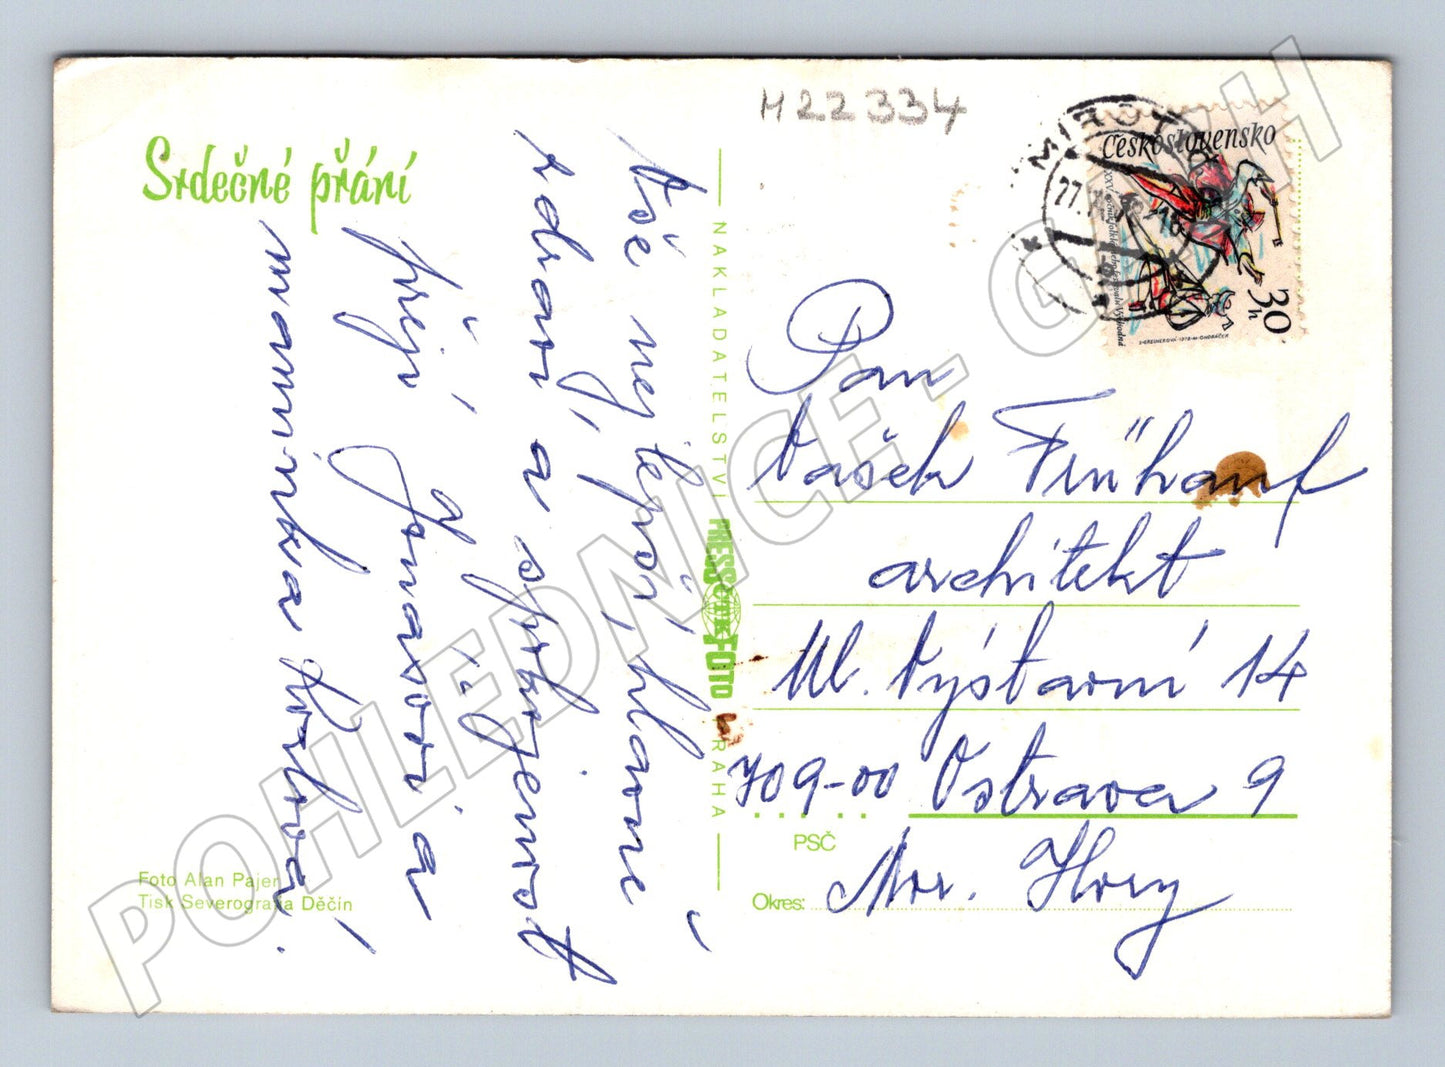 M22334
Srdečné přání
Vše nejlepší, hlavně
zdraví, a spokojenost
přejí Janarovi a
maminka Krlová.
Foto Alan Pajer
Tisk Severografia Děčín
NAKLADATELSTVÍ PRESSFOTO PRAHA
ČTK
Československo
30 h
MIROT
27.
Pan
Vašek Frühauf
architekt
Ul. Výstavní 14
709-00 Ostrava 9
PSČ
Mor. Hory
Okres:
POHLEDNICE - G H